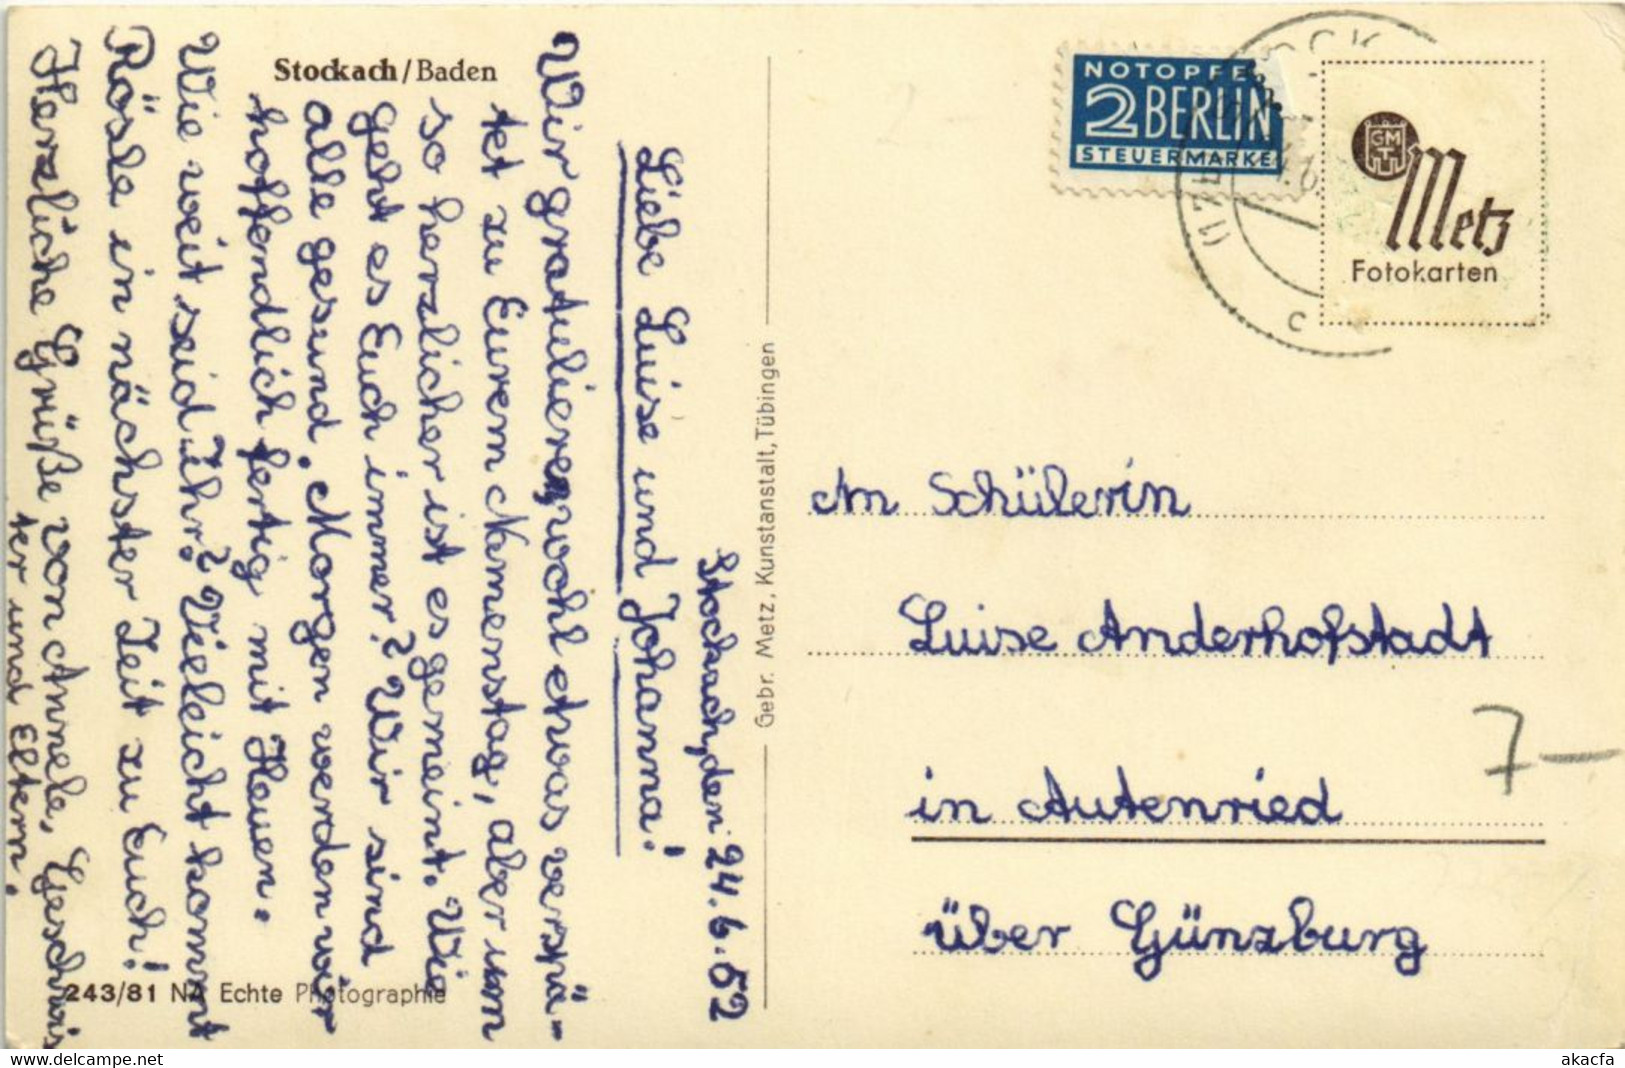 Stockach/Baden
Stockach, den 24.6.52
Liebe Luise und Johanna!
Wir gratulieren, wohl etwas verspä-
tet zu Eurem Namenstag, aber um
so herzlicher ist es gemeint. Wie
geht es Euch immer? Wir sind
alle gesund. Morgen werden wir
hoffendlich fertig mit Heuen.
Wie weit seid Ihr? Vieleicht kommt
Rösle in nächster Zeit zu Euch!
Herzliche Grüße von Annele, Geschwis
ter und Eltern.
243/81 NA Echte Photographie
Gebr. Metz, Kunstanstalt, Tübingen
NOTOPFE
2 BERLIN
STEUERMARKE
(17b
c
GMT
Metz
Fotokarten
An Schülerin
Luise Anderhofstadt
in Autenried
über Günzburg
7—
2-
www.delcampe.net
akacfa